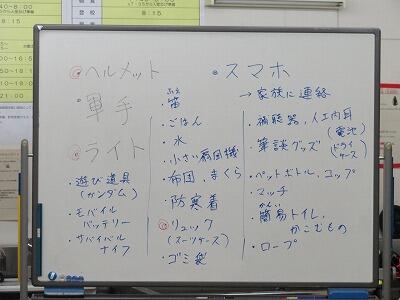 ヘルメット
・軍手
ライト
・遊び道具
(ガンダム)
・モバイル
バッテリー
・サバイバル
ナイフ
ふえ
・笛
・ごはん
・水
・小さい扇風機
・布団、まくら
・防寒着
リュック
(スーツケース)
・ゴミ袋
・スマホ
→家族に連絡
・補聴器、人工内耳
(電池)
・筆談グッズ
(ドライケース)
・ペットボトル、コップ
・マッチ
かんい
・簡易トイレ、
かこむもの
・ロープ
8:15
8:15